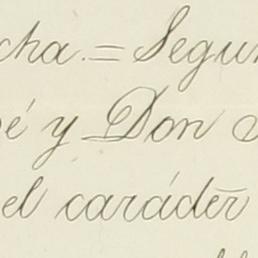 cha.=Segun
é y Don
el carácter